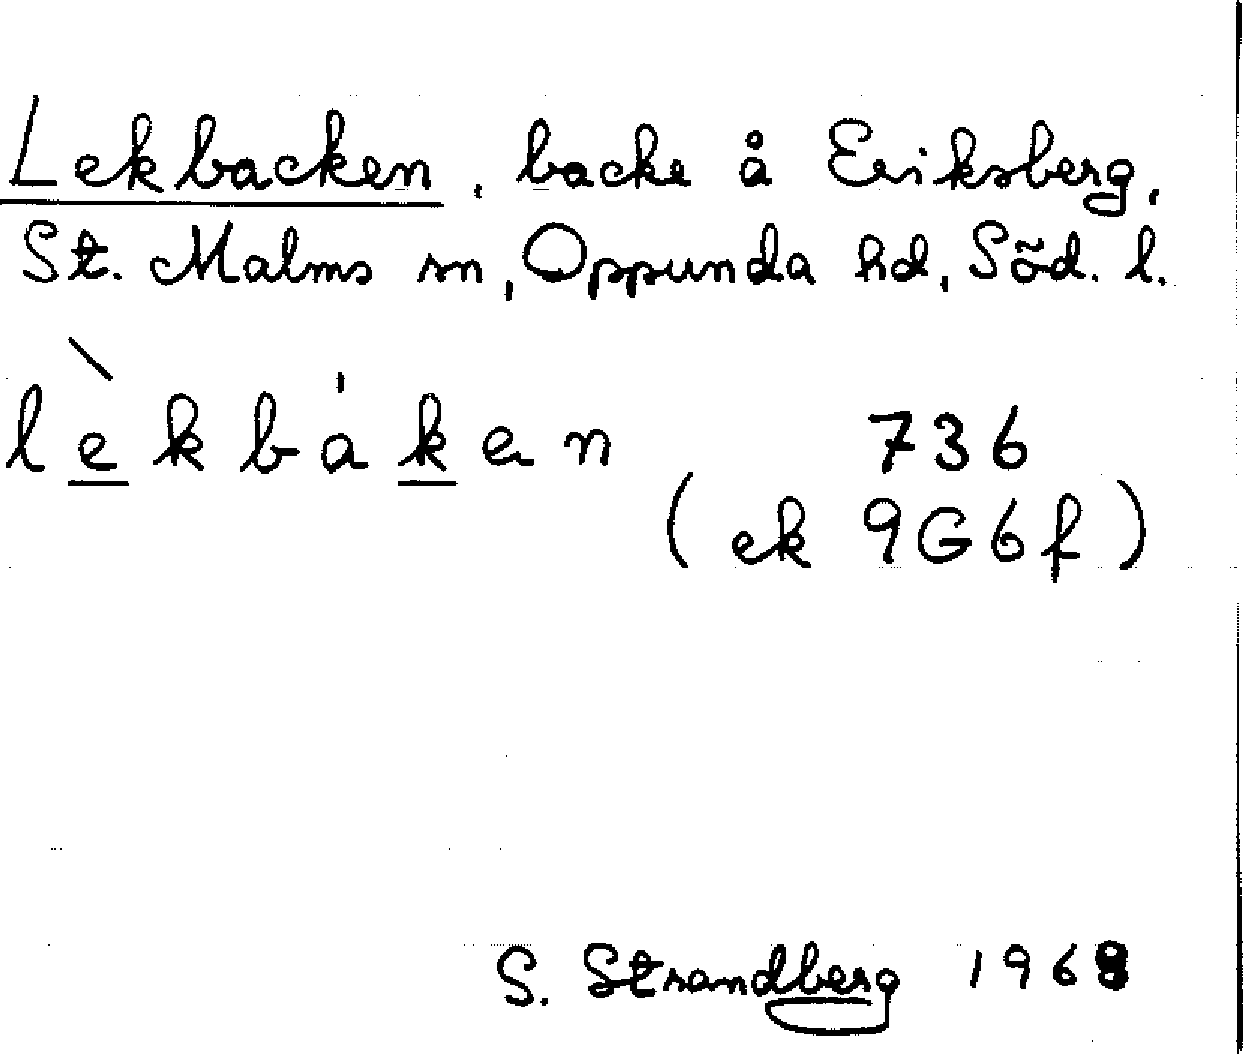 Lekbacken, backe å Eriksberg,
St. Malms sn, Oppunda hd, Söd. l.
lèkbáken 736
(ek 9G6f)
S. Strandberg 1968